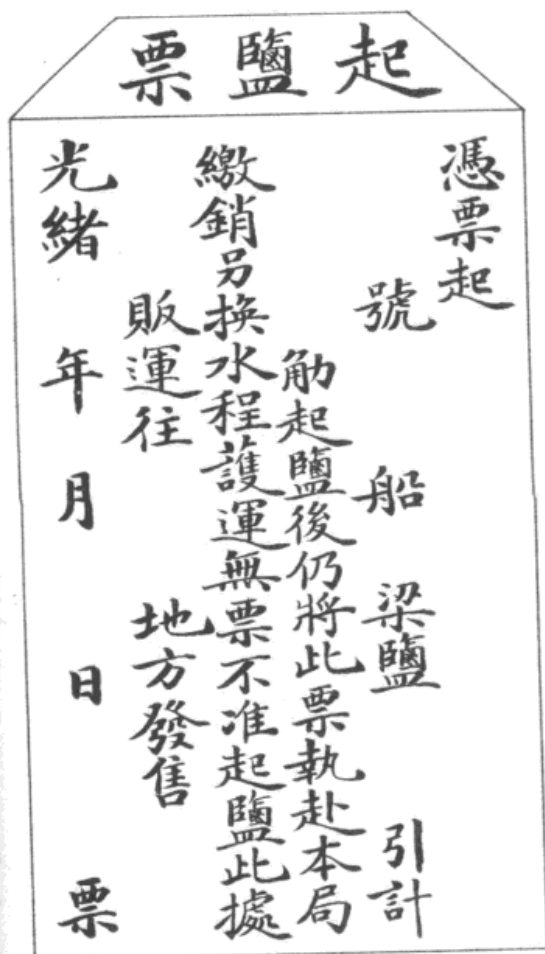 起鹽票
憑票起
號　船　梁鹽　引計
觔起鹽後仍將此票執赴本局
繳銷另換水程護運無票不准起鹽此據
販運往　地方發售
光緒　年　月　日　票